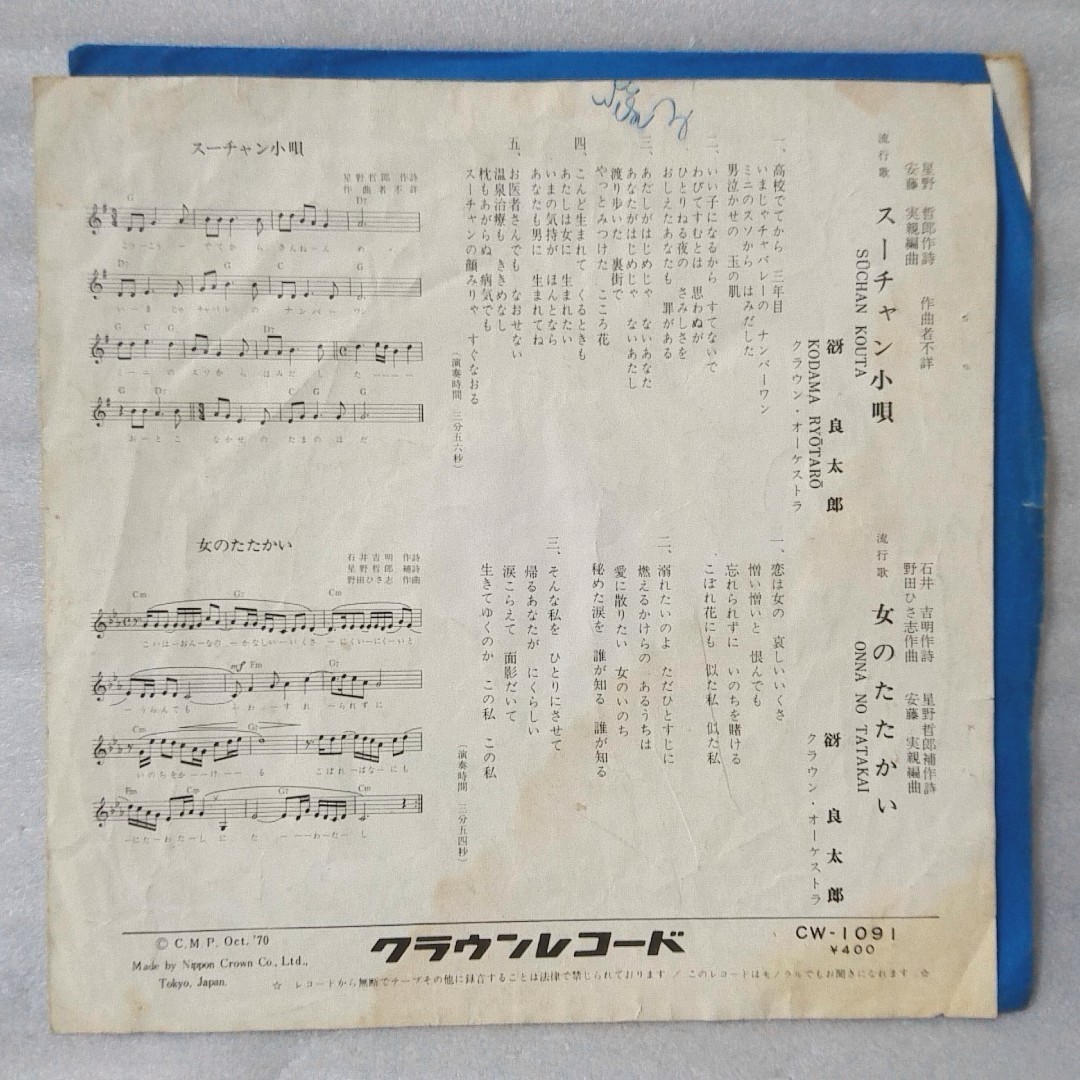 流行歌 スーチャン小唄
SŪCHAN KOUTA
星野 哲郎作詩
作曲者不詳
安藤 実親編曲
良太郎
KODAMA RYŌTARŌ
クラウン・オーケストラ
一、高校でてから 三年目
いまじゃチャバレーの ナンバーワン
ミニのスソから はみだした
男泣かせの 玉の肌
二、いい子になるから すてないで
わびてすむとは 思わぬが
ひとりねる夜の さみしさを
おしえたあなたも 罪がある
三、あだしがはじめじゃ ないあなた
あなたがはじめじゃ ないあたし
渡り歩いた 裏街で
やっとみつけた こころ花
四、こんど生まれて くるときも
あたしは女に 生まれたい
いまの気持が ほんとなら
あなたも男に 生まれてね
五、お医者さんでも なおせない
温泉治療も ききめなし
枕もあがらぬ 病気でも
スーチャンの顔みりゃ すぐなおる
(演奏時間 三分五六秒)
流行歌 女のたたかい
ONNA NO TATAKAI
石井 吉明作詩
星野哲郎補作詩
野田ひさ志作曲
安藤 実親編曲
良太郎
クラウン・オーケストラ
一、恋は女の 哀しいいくさ
憎い憎いと 恨んでも
忘れられずに いのちを賭ける
こぼれ花にも 似た私 似た私
二、溺れたいのよ ただひとすじに
燃えるかけらの あるうちは
愛に散りたい 女のいのち
秘めた涙を 誰が知る 誰が知る
三、そんな私を ひとりにさせて
帰るあなたが にくらしい
涙こらえて 面影だいて
生きてゆくのか この私 この私
(演奏時間 三分五四秒)
スーチャン小唄
星野哲郎 作詩
作曲者不詳
女のたたかい
石井吉明 作詩
星野哲郎 補詩
野田ひさ志 作曲
© C.M.P. Oct. '70
Made by Nippon Crown Co., Ltd.,
Tokyo, Japan.
クラウンレコード
CW-1091
¥400
☆ レコードから無断でテープその他に録音することは法律で禁じられております / このレコードはモノラルでもお聞きになれます ☆